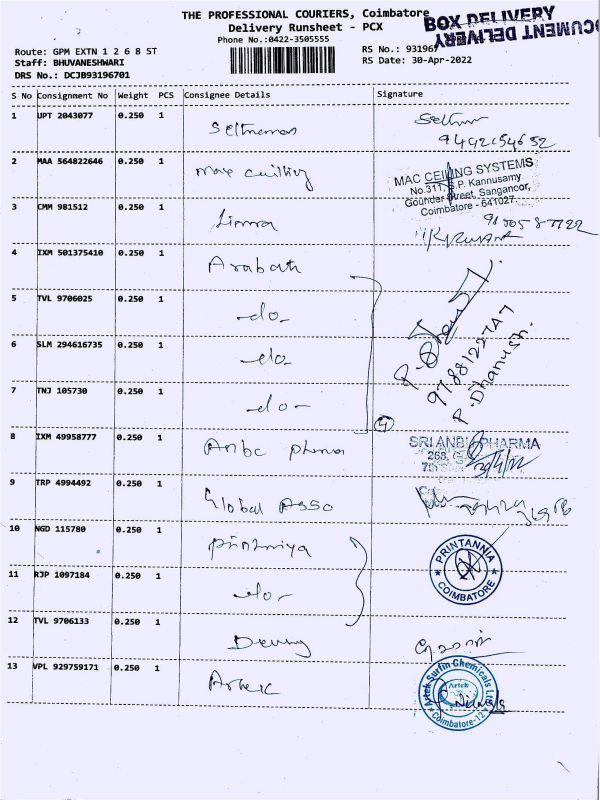 THE PROFESSIONAL COURIERS, Coimbatore
BOX DELIVERY
DOCUMENT DELIVERY
Delivery Runsheet - PCX
Phone No.:0422-3505555
Route: GPM EXTN 1 2 6 8 ST
RS No.: 93196
Staff: BHUVANESHWARI
RS Date: 30-Apr-2022
DRS No.: DCJB93196701
S No Consignment No Weight PCS Consignee Details Signature
1 UPT 2043077 0.250 1
2 MAA 564822646 0.250 1
MAC CEILING SYSTEMS
No.311, S.P. Kannusamy
Gounder Street, Sangancor,
Coimbatore - 641027.
3 CMM 981512 0.250 1
4 IXM 501375410 0.250 1 Arabath
5 TVL 9706025 0.250 1 -do-
6 SLM 294616735 0.250 1 -do-
P. Dhanush.
7 TNJ 105730 0.250 1 -do-
4
8 IXM 49958777 0.250 1
SRI ANBU PHARMA
9 TRP 4994492 0.250 1 Global Asso
10 NGD 115780 0.250 1
PRINTANNIA
COIMBATORE
11 RJP 1097184 0.250 1 -do-
12 TVL 9706133 0.250 1
13 VPL 929759171 0.250 1 Artek
Artek Surfin Chemicals Ltd
Artek
Coimbatore-12